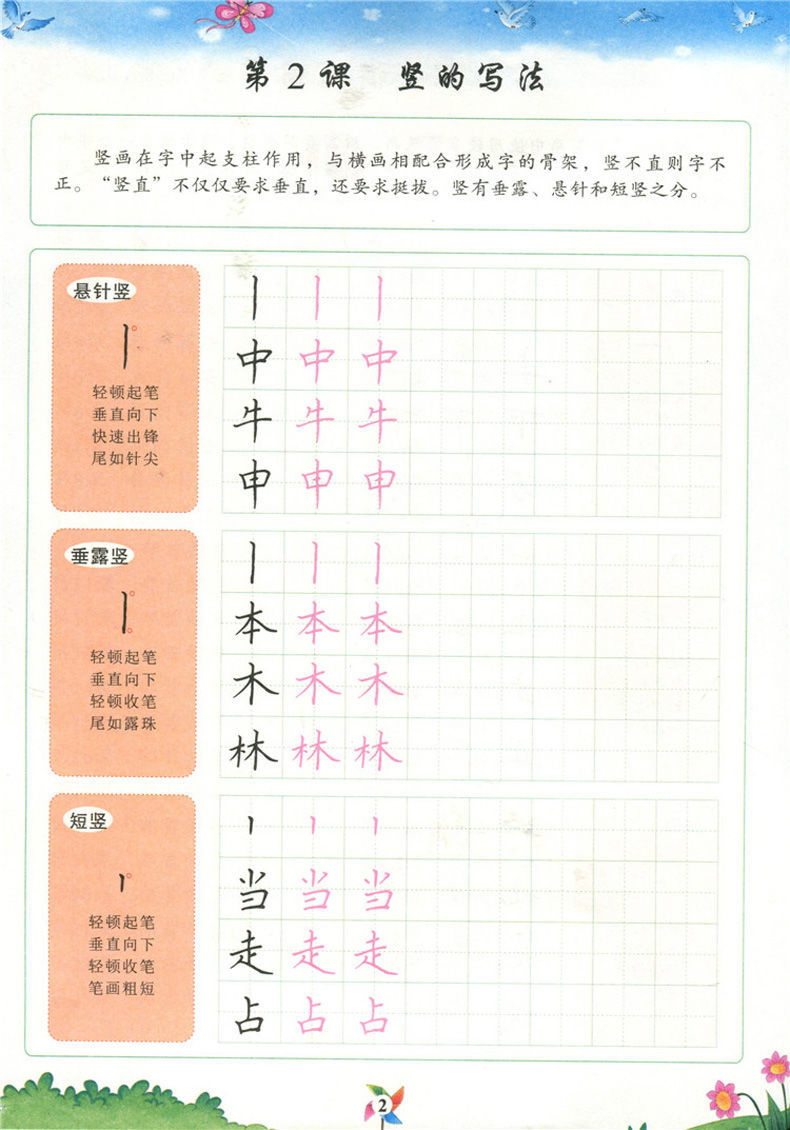 第2课 竖的写法
竖画在字中起支柱作用，与横画相配合形成字的骨架，竖不直则字不
正。“竖直”不仅仅要求垂直，还要求挺拔。竖有垂露、悬针和短竖之分。
悬针竖
轻顿起笔
垂直向下
快速出锋
尾如针尖
丨 丨 丨
中 中 中
牛 牛 牛
申 申 申
垂露竖
轻顿起笔
垂直向下
轻顿收笔
尾如露珠
丨 丨 丨
本 本 本
木 木 木
林 林 林
短竖
轻顿起笔
垂直向下
轻顿收笔
笔画粗短
丨 丨 丨
当 当 当
走 走 走
占 占 占
2